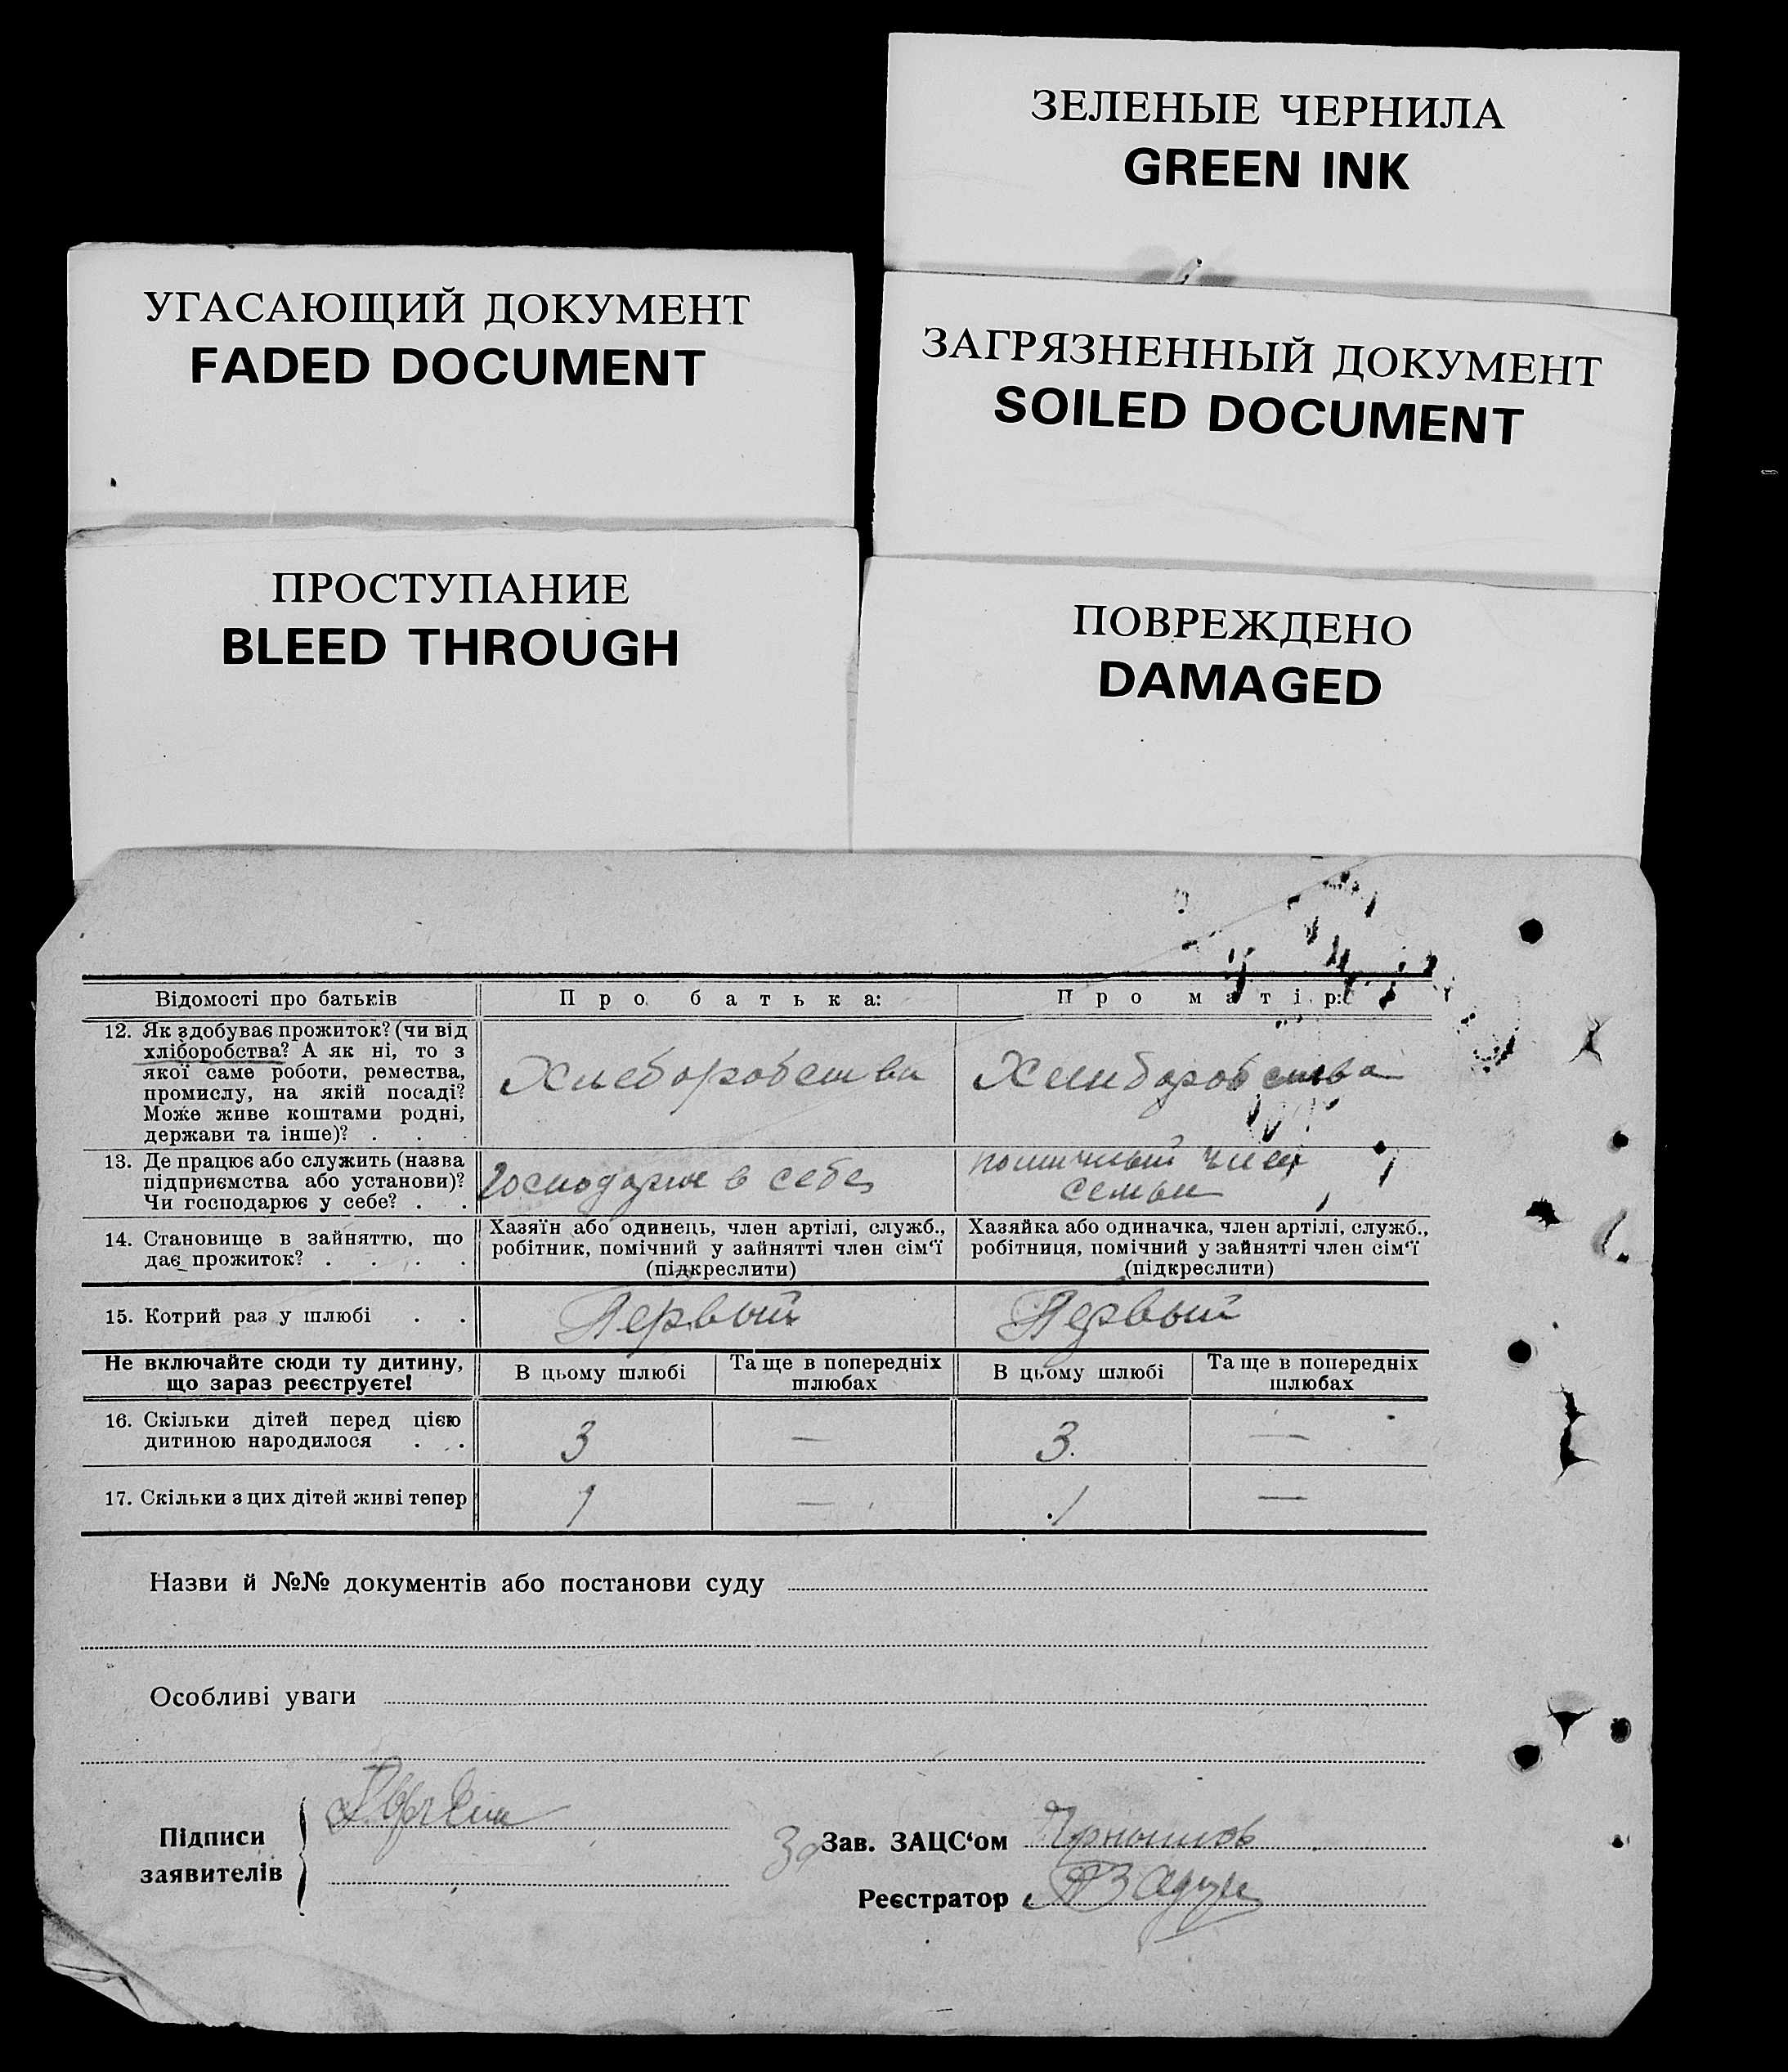 ЗЕЛЕНЫЕ ЧЕРНИЛА
GREEN INK
УГАСАЮЩИЙ ДОКУМЕНТ
FADED DOCUMENT
ЗАГРЯЗНЕННЫЙ ДОКУМЕНТ
SOILED DOCUMENT
ПРОСТУПАНИЕ
BLEED THROUGH
ПОВРЕЖДЕНО
DAMAGED
Відомості про батьків
Про батька:
Про матір:
12. Як здобуває прожиток? (чи від
хліборобства? А як ні, то з
якої саме роботи, ремества,
промислу, на якій посаді?
Може живе коштами родні,
держави та інше)? . . .
Хлеборобства
Хлиборобства
13. Де працює або служить (назва
підприємства або установи)?
Чи господарює у себе? . .
Господарює в себе
помичный член
семьи
14. Становище в зайняттю, що
дає прожиток? . . . .
Хазяїн або одинець, член артілі, служб.,
робітник, помічний у зайнятті член сім‘ї
(підкреслити)
Хазяйка або одиначка, член артілі, служб.,
робітниця, помічний у зайнятті член сім‘ї
(підкреслити)
15. Котрий раз у шлюбі . .
Первый
Первый
Не включайте сюди ту дитину,
що зараз реєструєте!
В цьому шлюбі
Та ще в попередніх
шлюбах
В цьому шлюбі
Та ще в попередніх
шлюбах
16. Скільки дітей перед цією
дитиною народилося . .
3
—
3.
—
17. Скільки з цих дітей живі тепер
1
—
1
—
Назви й №№ документів або постанови суду
Особливі уваги
Підписи
заявителів
За Зав. ЗАЦС‘ом
Реєстратор